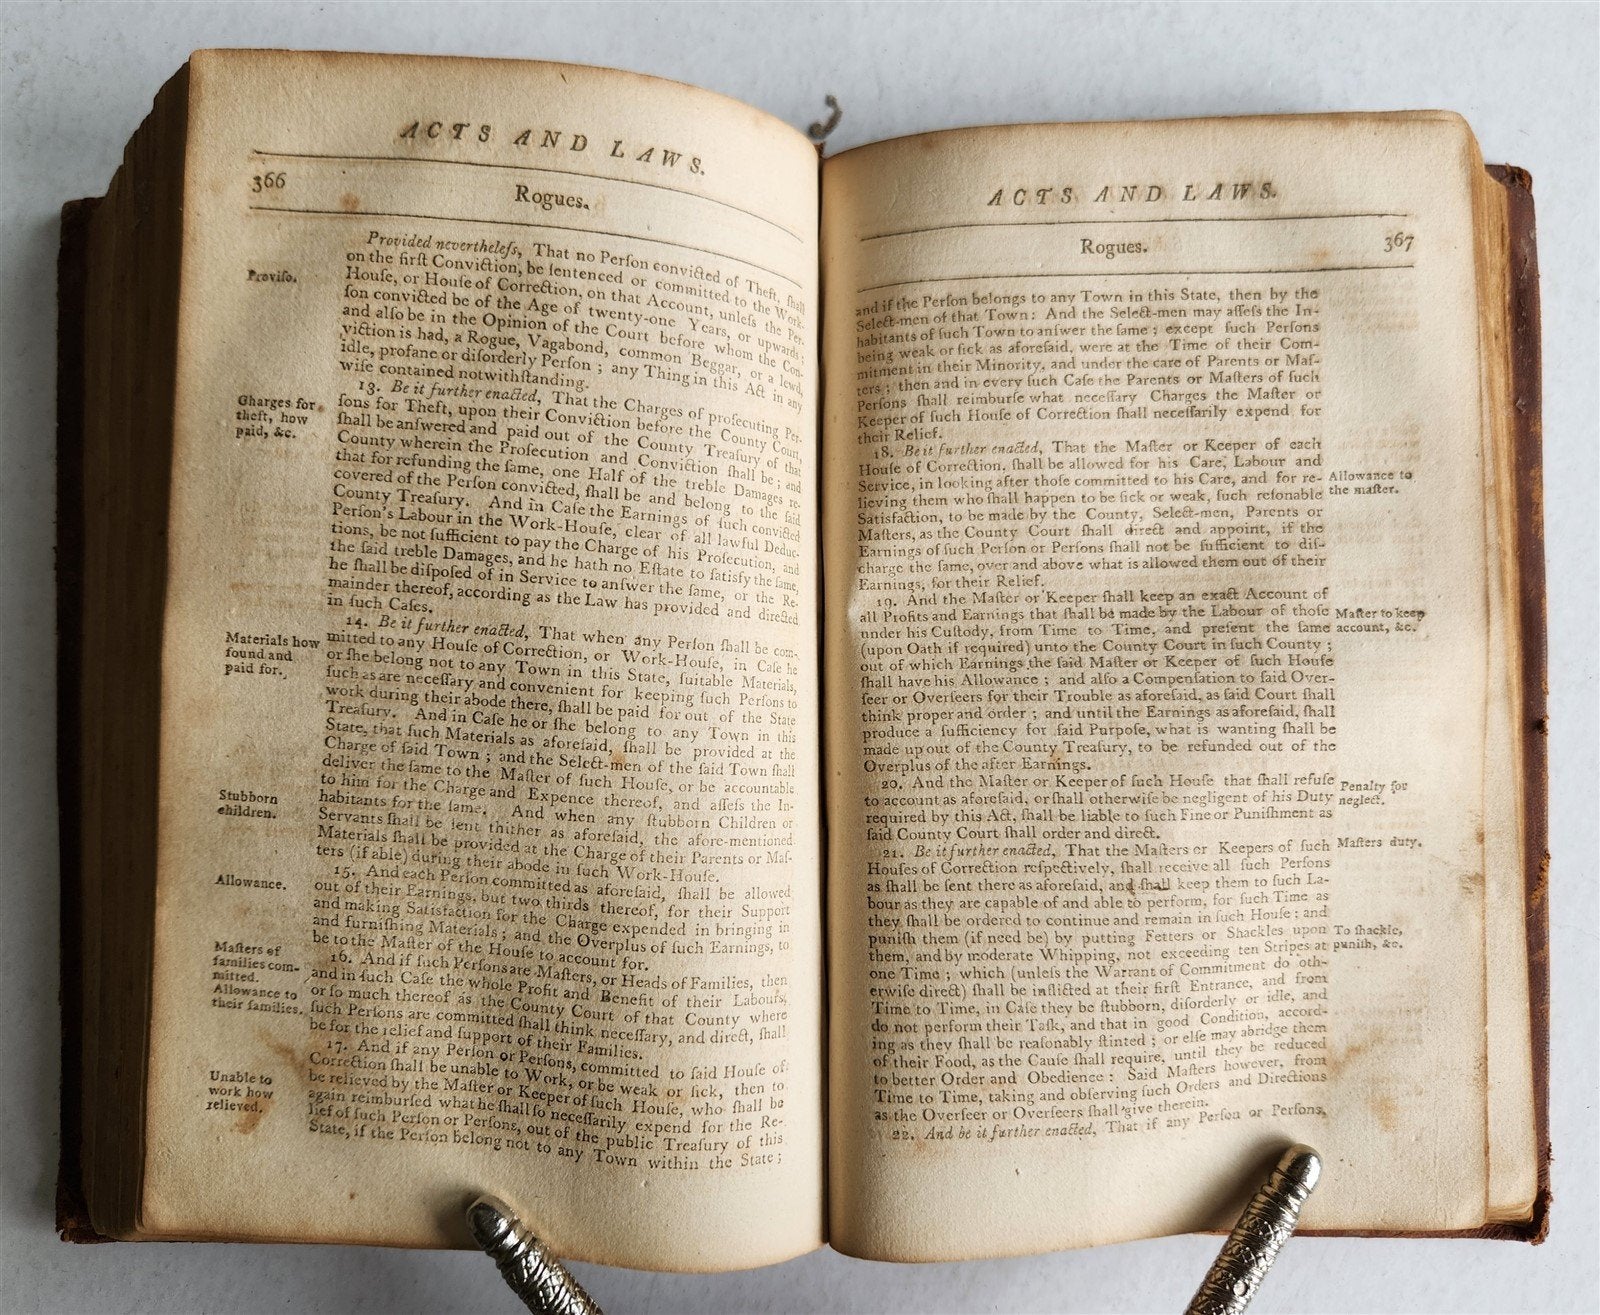 ACTS AND LAWS.
366
Rogues.
Proviſo.
Provided nevertheleſs, That no Perſon convicted of Theft, ſhall
on the firſt Conviction, be ſentenced or committed to the Work-
Houſe, or Houſe of Correction, on that Account, unleſs the Per-
ſon convicted be of the Age of twenty-one Years, or upwards;
and alſo be in the Opinion of the Court before whom the Con-
viction is had, a Rogue, Vagabond, common Beggar, or a lewd,
idle, profane or diſorderly Perſon ; any Thing in this Act in any
wiſe contained notwithſtanding.
Charges for
theft, how
paid, &c.
13. Be it further enacted, That the Charges of proſecuting Per-
ſons for Theft, upon their Conviction before the County Court,
ſhall be anſwered and paid out of the County Treaſury of that
County wherein the Proſecution and Conviction ſhall be ; and
that for refunding the ſame, one Half of the treble Damages re-
covered of the Perſon convicted, ſhall be and belong to the ſaid
County Treaſury. And in Caſe the Earnings of ſuch convicted
Perſon's Labour in the Work-Houſe, clear of all lawful Deduc-
tions, be not ſufficient to pay the Charge of his Proſecution, and
the ſaid treble Damages, and he hath no Eſtate to ſatisfy the ſame,
he ſhall be diſpoſed of in Service to anſwer the ſame, or the Re-
mainder thereof, according as the Law has provided and directed
in ſuch Caſes.
Materials how
found and
paid for.
14. Be it further enacted, That when any Perſon ſhall be com-
mitted to any Houſe of Correction, or Work-Houſe, in Caſe he
or ſhe belong not to any Town in this State, ſuitable Materials,
ſuch as are neceſſary and convenient for keeping ſuch Perſons to
work during their abode there, ſhall be paid for out of the State
Treaſury. And in Caſe he or ſhe belong to any Town in this
State, that ſuch Materials as aforeſaid, ſhall be provided at the
Charge of ſaid Town ; and the Select-men of the ſaid Town ſhall
deliver the ſame to the Maſter of ſuch Houſe, or be accountable
to him for the Charge and Expence thereof, and aſſeſs the In-
habitants for the ſame. And when any ſtubborn Children or
Stubborn
children.
Servants ſhall be ſent thither as aforeſaid, the afore-mentioned
Materials ſhall be provided at the Charge of their Parents or Maſ-
ters (if able) during their abode in ſuch Work-Houſe.
Allowance.
15. And each Perſon committed as aforeſaid, ſhall be allowed
out of their Earnings, but two thirds thereof, for their Support
and making Satisfaction for the Charge expended in bringing in
and furniſhing Materials ; and the Overplus of ſuch Earnings, to
be to the Maſter of the Houſe to account for.
Maſters of
families com-
mitted.
Allowance to
their families.
16. And if ſuch Perſons are Maſters, or Heads of Families, then
and in ſuch Caſe the whole Profit and Benefit of their Labours,
or ſo much thereof as the County Court of that County where
ſuch Perſons are committed ſhall think neceſſary, and direct, ſhall
be for the relief and ſupport of their Families.
Unable to
work how
relieved.
17. And if any Perſon or Perſons, committed to ſaid Houſe of
Correction ſhall be unable to Work, or be weak or ſick, then to
be relieved by the Maſter or Keeper of ſuch Houſe, who ſhall be
again reimburſed what he ſhall ſo neceſſarily expend for the Re-
lief of ſuch Perſon or Perſons, out of the public Treaſury of this
State, if the Perſon belong not to any Town within the State ;
ACTS AND LAWS.
Rogues.
367
and if the Perſon belongs to any Town in this State, then by the
Select-men of that Town: And the Select-men may aſſeſs the In-
habitants of ſuch Town to anſwer the ſame ; except ſuch Perſons
being weak or ſick as aforeſaid, were at the Time of their Com-
mitment in their Minority, and under the care of Parents or Maſ-
ters ; then and in every ſuch Caſe the Parents or Maſters of ſuch
Perſons ſhall reimburſe what neceſſary Charges the Maſter or
Keeper of ſuch Houſe of Correction ſhall neceſſarily expend for
their Relief.
18. Be it further enacted, That the Maſter or Keeper of each
Houſe of Correction, ſhall be allowed for his Care, Labour and
Service, in looking after thoſe committed to his Care, and for re-
lieving them who ſhall happen to be ſick or weak, ſuch reſonable
Satisfaction, to be made by the County, Select-men, Parents or
Maſters, as the County Court ſhall direct and appoint, if the
Earnings of ſuch Perſon or Perſons ſhall not be ſufficient to diſ-
charge the ſame, over and above what is allowed them out of their
Earnings, for their Relief.
Allowance to
the maſter.
19. And the Maſter or Keeper ſhall keep an exact Account of
all Profits and Earnings that ſhall be made by the Labour of thoſe
under his Cuſtody, from Time to Time, and preſent the ſame
(upon Oath if required) unto the County Court in ſuch County ;
out of which Earnings the ſaid Maſter or Keeper of ſuch Houſe
ſhall have his Allowance ; and alſo a Compenſation to ſaid Over-
ſeer or Overſeers for their Trouble as aforeſaid, as ſaid Court ſhall
think proper and order ; and until the Earnings as aforeſaid, ſhall
produce a ſufficiency for ſaid Purpoſe, what is wanting ſhall be
made up out of the County Treaſury, to be refunded out of the
Overplus of the after Earnings.
Maſter to keep
account, &c.
20. And the Maſter or Keeper of ſuch Houſe that ſhall refuſe
to account as aforeſaid, or ſhall otherwiſe be negligent of his Duty
required by this Act, ſhall be liable to ſuch Fine or Puniſhment as
ſaid County Court ſhall order and direct.
Penalty for
neglect.
21. Be it further enacted, That the Maſters or Keepers of ſuch
Houſes of Correction reſpectively, ſhall receive all ſuch Perſons
as ſhall be ſent there as aforeſaid, and ſhall keep them to ſuch La-
bour as they are capable of and able to perform, for ſuch Time as
they ſhall be ordered to continue and remain in ſuch Houſe : and
puniſh them (if need be) by putting Fetters or Shackles upon
them, and by moderate Whipping, not exceeding ten Stripes at
one Time ; which (unleſs the Warrant of Commitment do oth-
erwiſe direct) ſhall be inflicted at their firſt Entrance, and from
Time to Time, in Caſe they be ſtubborn, diſorderly or idle, and
do not perform their Taſk, and that in good Condition, accord-
ing as they ſhall be reaſonably ſtinted ; or elſe may abridge them
of their Food, as the Cauſe ſhall require, until they be reduced
to better Order and Obedience : Said Maſters however, from
Time to Time, taking and obſerving ſuch Orders and Directions
as the Overſeer or Overſeers ſhall give therein.
Maſters duty.
To ſhackle,
puniſh, &c.
22. And be it further enacted, That if any Perſon or Perſons,